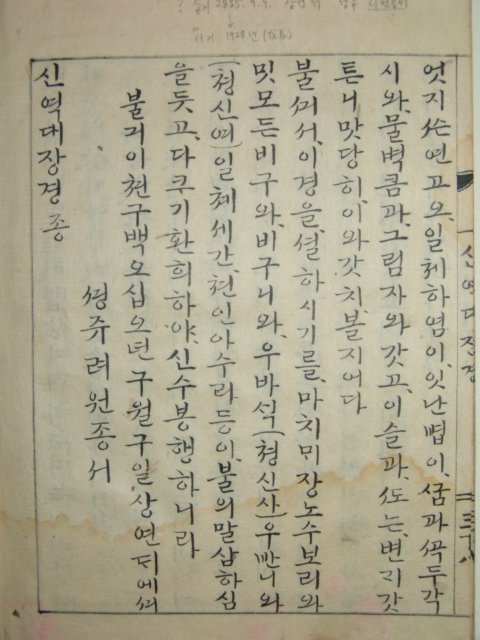 엇지 연고오、일체하염이、잇난ᄲᅥᆸ이、ᄭᅮᆷ과、ᄭᅩᆨ두각
시와、물벅콤과、그림자와갓고、이슬과、ᄯᅩ는、변기갓
튼니맛당히、이와갓치、볼지어다
불ᄭᅦ서、이경을、셜하시기를、마치미、장노수보리와
밋모든비구와、비구니와、우바식(쳥신사)우ᄲᅡ니와
(쳥신여)일체세간、쳔인아수라등이、불의말삼하심
을듯고、다크기환희하야、신수봉행하니라
불기이쳔구백오십오년구월구일、상연뒤에
려원종서
신역대장경종
신역대장경